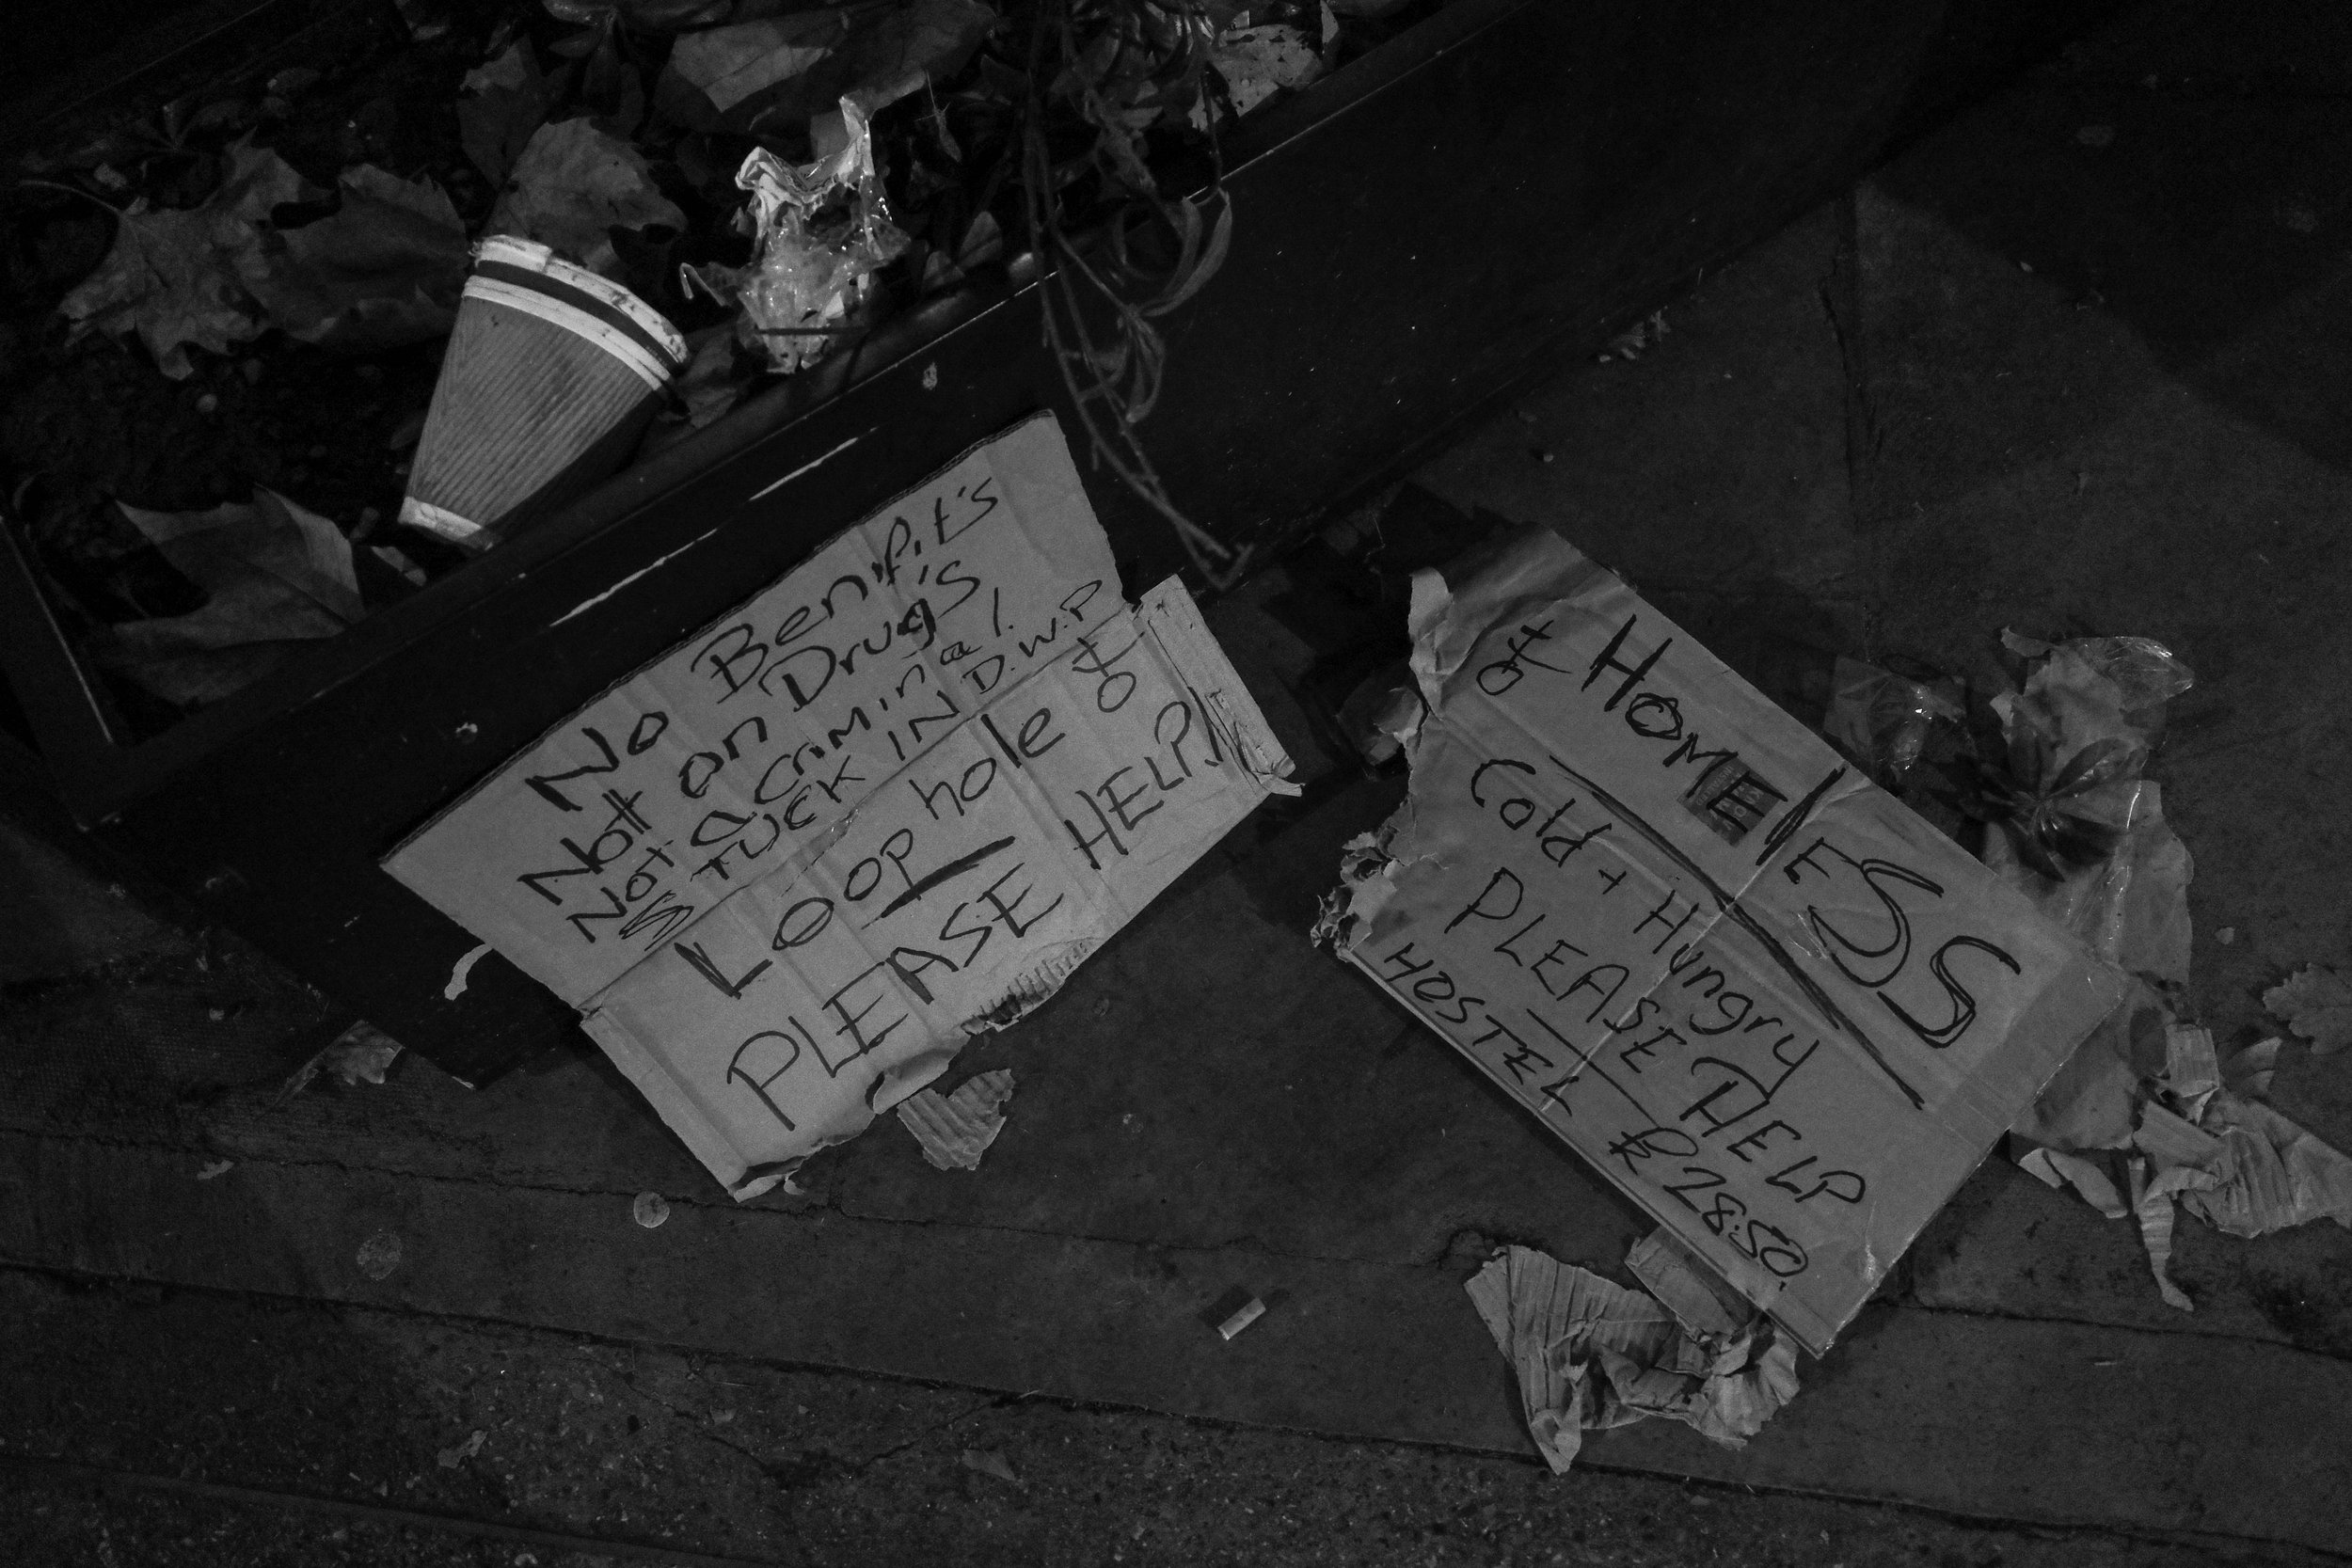 No Benifit's
Nott on Drug's
Not a Criminal.
STUCK IN D.W.P
LOOP hole
PLEASE HELP!
HOMElESS
Cold + Hungry
PLEASE HELP
HOSTEL £28:50.